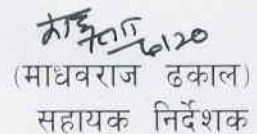 (माधवराज ढकाल)
सहायक निर्देशक